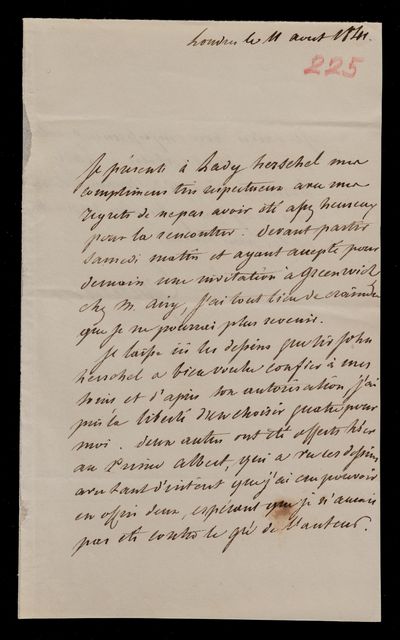 Londres le 11 aout 1841.
225
Je présente à Lady herschel mes
complimens très respectueux avec mes
regrets de ne pas avoir été assez heureux
pour la rencontrer. Devant partir
Samedi matin et ayant accepté pour
demain une invitation à Greenwich
chez M. Airy, j'ai tout lieu de craindre
que je ne pourrai plus revenir.
Je laisse ici les dessins que Sir John
herschel a bien voulu confier à mes
soins et d'après son autorisation j'ai
pris la liberté d'en choisir quatre pour
moi. deux autres ont été offerts hier
au Prince Albert, qui a vu ces dessins
avec tant d'intérêt que j'ai cru pouvoir
en offrir deux, espérant que je n'aurais
pas été contre le gré de l'auteur.